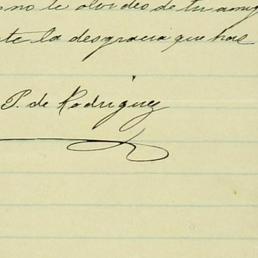 no te olvides de tu amig
te la desgracia que has
P. de Rodriguez